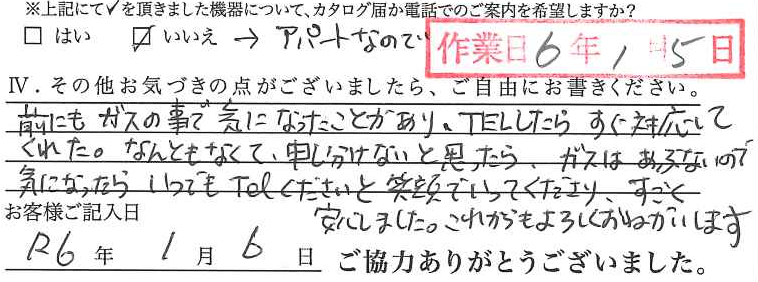 ※上記にて✓を頂きました機器について、カタログ届か電話でのご案内を希望しますか?
□ はい ☑ いいえ → アパートなので
作業日 6年 1月 5日
Ⅳ．その他お気づきの点がございましたら、ご自由にお書きください。
前にも ガスの事で 気になったことがあり、TELしたら すぐ対応して
くれた。なんともなくて、申し分けないと思ったら、ガスは あぶないので
気になったら いつでも Telくださいと 笑顔でいってくださり、すごく
安心しました。これからもよろしくおねがいします
お客様ご記入日
R6 年 1 月 6 日 ご協力ありがとうございました。